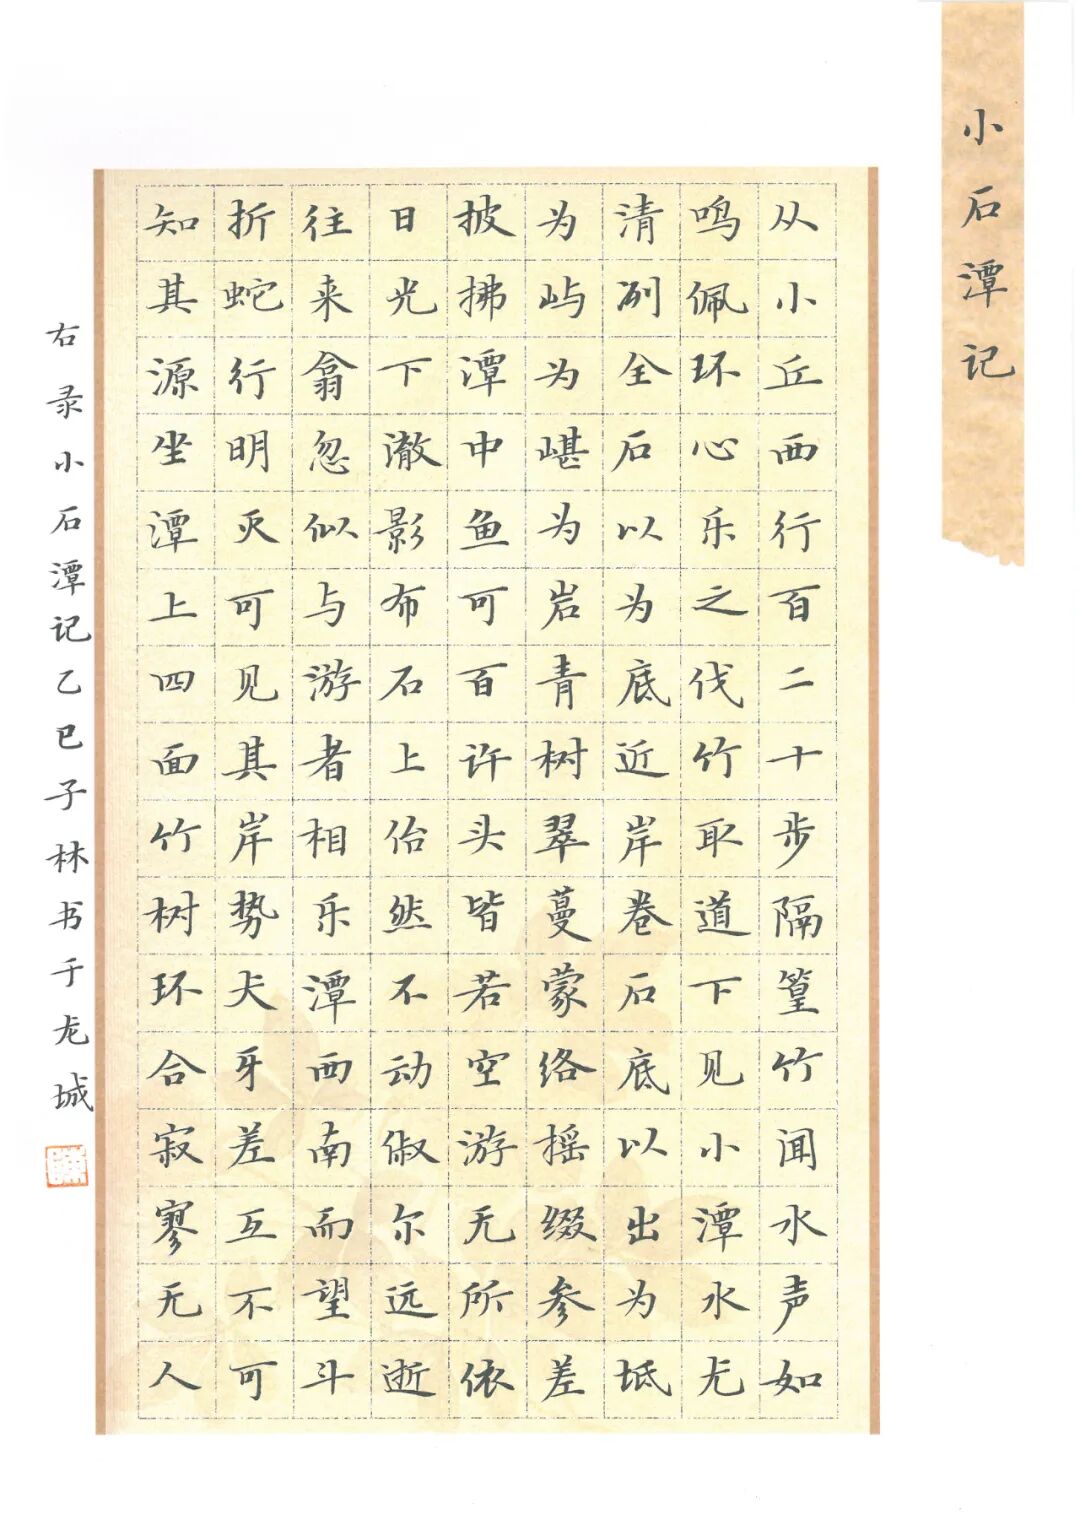 小石潭记
从小丘西行百二十步隔篁竹闻水声如
鸣佩环心乐之伐竹取道下见小潭水尤
清冽全石以为底近岸卷石底以出为坻
为屿为嵁为岩青树翠蔓蒙络摇缀参差
披拂潭中鱼可百许头皆若空游无所依
日光下澈影布石上佁然不动俶尔远逝
往来翕忽似与游者相乐潭西南而望斗
折蛇行明灭可见其岸势犬牙差互不可
知其源坐潭上四面竹树环合寂寥无人
右录小石潭记乙巳子林书于龙城